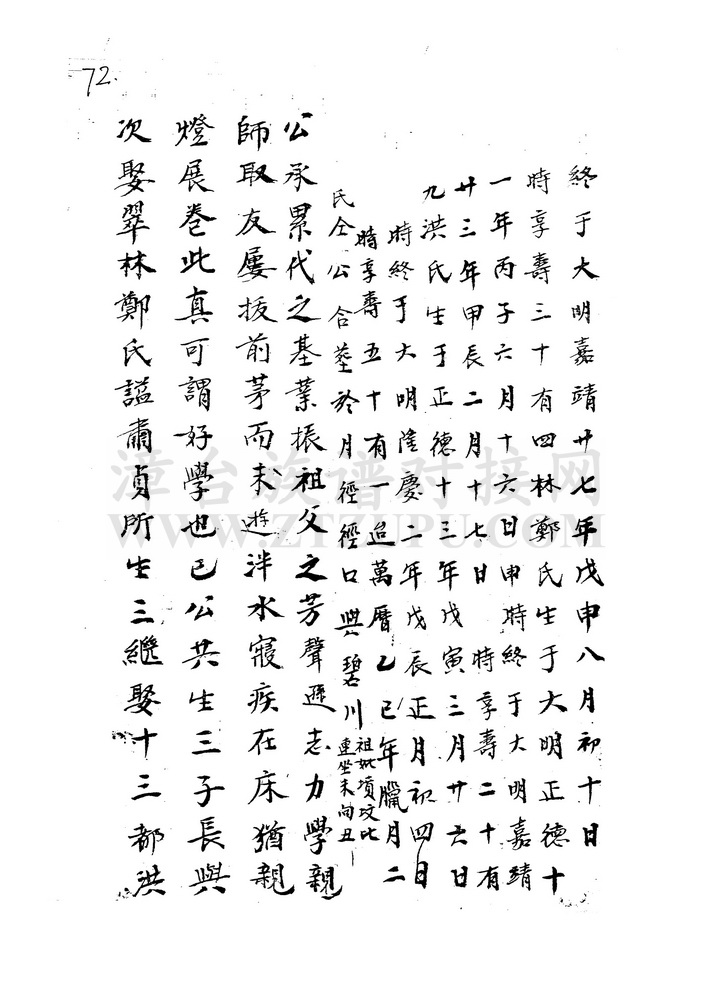 72.
終于大明嘉靖廿七年戊申八月初十日
時享壽三十有四林鄭氏生于大明正德十
一年丙子六月十六日申時終于大明嘉靖
廿三年甲辰二月十七日時享壽二十有
九洪氏生于正德十三年戊寅三月廿六日
時終于大明隆慶二年戊辰正月初四日
時享壽五十有一追萬曆乙巳年臘月二
氏仝公合葬於月徑徑口與碧川祖妣項坟比連坐未向丑
公承累代之基業振祖父之芳聲遜志力學親
師取友屢拔前茅而未遊泮水寢疾在床猶親
燈展卷此真可謂好學也已公共生三子長與
次娶翠林鄭氏謚肅貞所生三繼娶十三都洪
漳台族谱对接网
WWW.ZTZUPU.COM